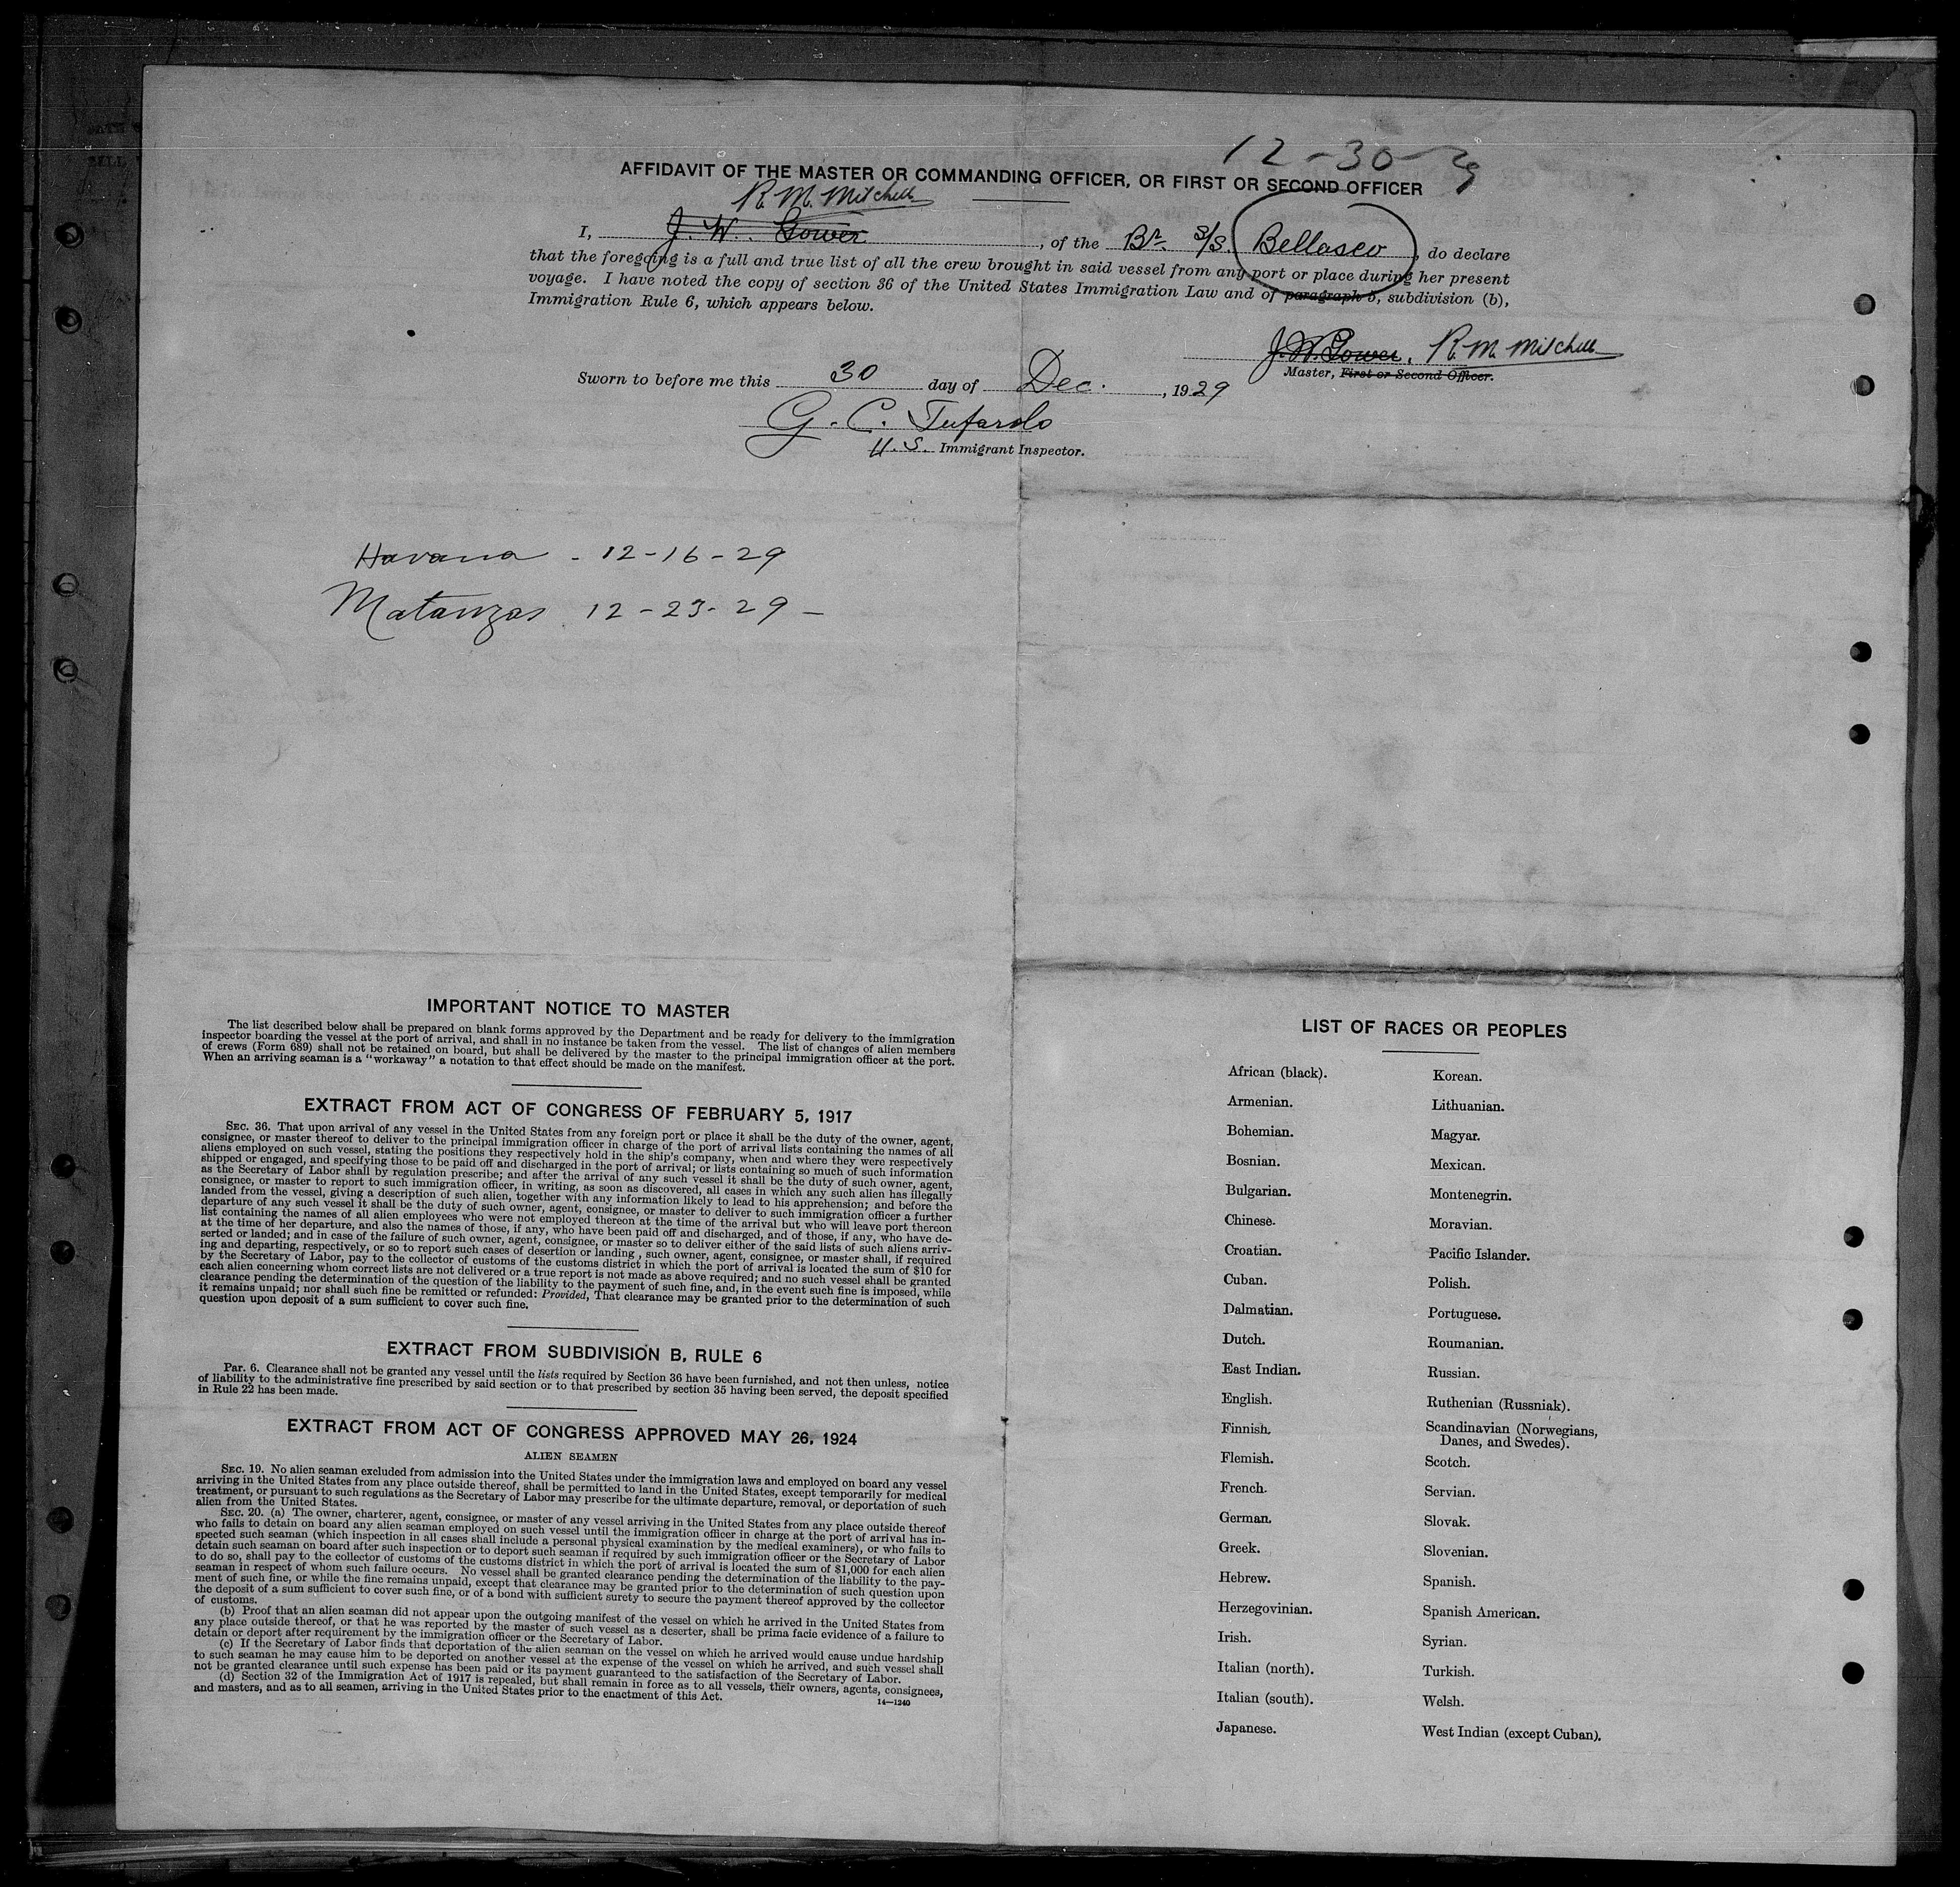 12-30-29
AFFIDAVIT OF THE MASTER OR COMMANDING OFFICER, OR FIRST OR SECOND OFFICER
R. M. Mitchell
I, J. W. Gower, of the Br. S/S. Bellasco, do declare
that the foregoing is a full and true list of all the crew brought in said vessel from any port or place during her present
voyage. I have noted the copy of section 36 of the United States Immigration Law and of paragraph 5, subdivision (b),
Immigration Rule 6, which appears below.
J. W. Gower. R. M. Mitchell
Master, First or Second Officer.
Sworn to before me this 30 day of Dec., 1929
G. C. Tufarolo
U.S. Immigrant Inspector.
Havana - 12-16-29
Matanzas 12-23-29 -
IMPORTANT NOTICE TO MASTER
The list described below shall be prepared on blank forms approved by the Department and be ready for delivery to the immigration
inspector boarding the vessel at the port of arrival, and shall in no instance be taken from the vessel. The list of changes of alien members
of crews (Form 689) shall not be retained on board, but shall be delivered by the master to the principal immigration officer at the port.
When an arriving seaman is a "workaway" a notation to that effect should be made on the manifest.
EXTRACT FROM ACT OF CONGRESS OF FEBRUARY 5, 1917
SEC. 36. That upon arrival of any vessel in the United States from any foreign port or place it shall be the duty of the owner, agent,
consignee, or master thereof to deliver to the principal immigration officer in charge of the port of arrival lists containing the names of all
aliens employed on such vessel, stating the positions they respectively hold in the ship's company, when and where they were respectively
shipped or engaged, and specifying those to be paid off and discharged in the port of arrival; or lists containing so much of such information
as the Secretary of Labor shall by regulation prescribe; and after the arrival of any such vessel it shall be the duty of such owner, agent,
consignee, or master to report to such immigration officer, in writing, as soon as discovered, all cases in which any such alien has illegally
landed from the vessel, giving a description of such alien, together with any information likely to lead to his apprehension; and before the
departure of any such vessel it shall be the duty of such owner, agent, consignee, or master to deliver to such immigration officer a further
list containing the names of all alien employees who were not employed thereon at the time of the arrival but who will leave port thereon
at the time of her departure, and also the names of those, if any, who have been paid off and discharged, and of those, if any, who have de-
serted or landed; and in case of the failure of such owner, agent, consignee, or master so to deliver either of the said lists of such aliens arriv-
ing and departing, respectively, or so to report such cases of desertion or landing, such owner, agent, consignee, or master shall, if required
by the Secretary of Labor, pay to the collector of customs of the customs district in which the port of arrival is located the sum of $10 for
each alien concerning whom correct lists are not delivered or a true report is not made as above required; and no such vessel shall be granted
clearance pending the determination of the question of the liability to the payment of such fine, and, in the event such fine is imposed, while
it remains unpaid; nor shall such fine be remitted or refunded: Provided, That clearance may be granted prior to the determination of such
question upon deposit of a sum sufficient to cover such fine.
EXTRACT FROM SUBDIVISION B, RULE 6
Par. 6. Clearance shall not be granted any vessel until the lists required by Section 36 have been furnished, and not then unless, notice
of liability to the administrative fine prescribed by said section or to that prescribed by section 35 having been served, the deposit specified
in Rule 22 has been made.
EXTRACT FROM ACT OF CONGRESS APPROVED MAY 26, 1924
ALIEN SEAMEN
SEC. 19. No alien seaman excluded from admission into the United States under the immigration laws and employed on board any vessel
arriving in the United States from any place outside thereof, shall be permitted to land in the United States, except temporarily for medical
treatment, or pursuant to such regulations as the Secretary of Labor may prescribe for the ultimate departure, removal, or deportation of such
alien from the United States.
SEC. 20. (a) The owner, charterer, agent, consignee, or master of any vessel arriving in the United States from any place outside thereof
who fails to detain on board any alien seaman employed on such vessel until the immigration officer in charge at the port of arrival has in-
spected such seaman (which inspection in all cases shall include a personal physical examination by the medical examiners), or who fails to
detain such seaman on board after such inspection or to deport such seaman if required by such immigration officer or the Secretary of Labor
to do so, shall pay to the collector of customs of the customs district in which the port of arrival is located the sum of $1,000 for each alien
seaman in respect of whom such failure occurs. No vessel shall be granted clearance pending the determination of the liability to the pay-
ment of such fine, or while the fine remains unpaid, except that clearance may be granted prior to the determination of such question upon
the deposit of a sum sufficient to cover such fine, or of a bond with sufficient surety to secure the payment thereof approved by the collector
of customs.
(b) Proof that an alien seaman did not appear upon the outgoing manifest of the vessel on which he arrived in the United States from
any place outside thereof, or that he was reported by the master of such vessel as a deserter, shall be prima facie evidence of a failure to
detain or deport after requirement by the immigration officer or the Secretary of Labor.
(c) If the Secretary of Labor finds that deportation of the alien seaman on the vessel on which he arrived would cause undue hardship
to such seaman he may cause him to be deported on another vessel at the expense of the vessel on which he arrived, and such vessel shall
not be granted clearance until such expense has been paid or its payment guaranteed to the satisfaction of the Secretary of Labor.
(d) Section 32 of the Immigration Act of 1917 is repealed, but shall remain in force as to all vessels, their owners, agents, consignees,
and masters, and as to all seamen, arriving in the United States prior to the enactment of this Act.
14—1240
LIST OF RACES OR PEOPLES
African (black).
Armenian.
Bohemian.
Bosnian.
Bulgarian.
Chinese.
Croatian.
Cuban.
Dalmatian.
Dutch.
East Indian.
English.
Finnish.
Flemish.
French.
German.
Greek.
Hebrew.
Herzegovinian.
Irish.
Italian (north).
Italian (south).
Japanese.
Korean.
Lithuanian.
Magyar.
Mexican.
Montenegrin.
Moravian.
Pacific Islander.
Polish.
Portuguese.
Roumanian.
Russian.
Ruthenian (Russniak).
Scandinavian (Norwegians,
Danes, and Swedes).
Scotch.
Servian.
Slovak.
Slovenian.
Spanish.
Spanish American.
Syrian.
Turkish.
Welsh.
West Indian (except Cuban).